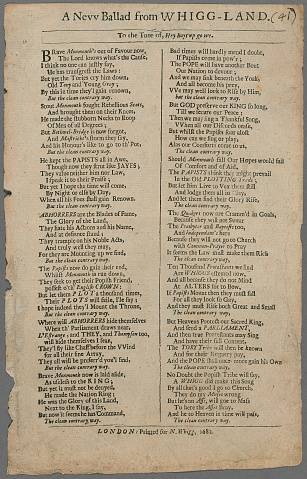 A Nevv Ballad from WHIGG-LAND. (41)
To the Tune of, Hey Boys up go we.
BRave Monmouth's out of Favour now,
The Lord knows what's the Cause,
I think no one can justly say,
He has transgress'd the Laws:
But yet the Tories cry him down,
Old Tory and Young Grey;
By this in time they'l gain renown,
But the clean contrary way.
Scotch Monmouth fought Rebellious Scots,
And brought them on their Knees,
He made the Stubborn Necks to Stoop
Of Men of all Degrees;
But Bothwel-Bridge is now forgot,
And
And his Honour's like to go to Pot,
But the clean contrary way.
He kept the Papists all in Awe,
Though now they strut like JAYES;
They value neither him nor Law,
I speak it to their Praise:
But yet I hope the time will come,
By Night or else by Day,
When all his Foes shall gain Renown,
But the clean contrary way.
ABHORRERS are the Blades of Fame,
The Glory of the Land,
They hate his Actions and his Name,
And at defiance stand;
They trample on his Noble Acts,
And truly well they may,
For they are Mounting up we find,
But the clean contrary way.
The Papists now do gain their end,
Whilst Monmouth is run down,
They seek to get their Popish Friend,
possess old English CROWN:
But let them PLOT a thousand times,
Their PLOTS will faile, I'le say;
I hope indeed they'l Mount the Throne,
But the clean contrary way.
Where will ABHORRERS hide themselves
When th' Parliament draws near,
L'Estrange, and THEY, and Thompson too,
will hide themselves I fear,
They'l fly like Chaff before the VVind
for all their fine Array,
They all will be prefer'd you'l find,
But the clean contrary way.
Brave Monmouth now is laid aside,
As useless to the KING;
But yet it must not be deny'd,
He made the Nation Ring:
He was the Glory of this Land,
Next to the King, I say,
But now it seems he has Command,
The clean contrary way.
Bad times will hardly mend I doubt,
If Papists come in pow'r;
The POPE will have another Bout
Our Nation to devour;
And we may sink beneath the Yoak,
And all become his prey,
VVe may well look to Rise by Him,
But the clean contrary way.
But GOD preserve our KING so long,
Till we secure our Peace;
Then we may sing a Thankful Song,
VVhen all our Discords cease.
But whilst the Papists soar aloft
How can we sing or play,
Alas our Comforts come to us,
But the clean contrary way.
Should Monmouth fall Our Hopes would fall
Of Comfort and of Aid,
The PAPISTS then they might prevail
In the Old PLOTTING Trade;
But let him Live to Vex them still
And lodge them all in Clay
And let them find their Glory Rise,
The clean contrary way.
The Quakers now are Cramm'd in Goals,
Because they will not Swear
The Presbyter and Baptist too,
And Independent's here
Because they will not go to Church
with Common-Prayer to Pray
It seems the Law shall make them Rich
The clean contrary way.
Ten Thousand Protestants we find
Are WHIGGS esteem'd now,
And all because they do not Mind
At ALTERS for to Bow;
If Papists Mount then they must fall
For all they look so Gay,
And they must Rise both Great and Small
The clean contrary way.
But Heavens Protect our Sacred King,
And send a PARLIAMENT,
And then true Protestants may Sing
And have their full Content.
The TORY Tories will then be known
And for their Roguery pay,
And the POPE shall once more gain his Own
The clean contrary way.
No Doubt the Popish Tribe will say,
A WHIGG did make this Song
By all that's good I go to Church,
They do my Muse wrong
But he's an Ass, will goe to Mass
To hear the Asses Bray,
And he to Heaven in time will pass,
The clean contrary way.
LONDON: Printed for N. Whigg. 1682.